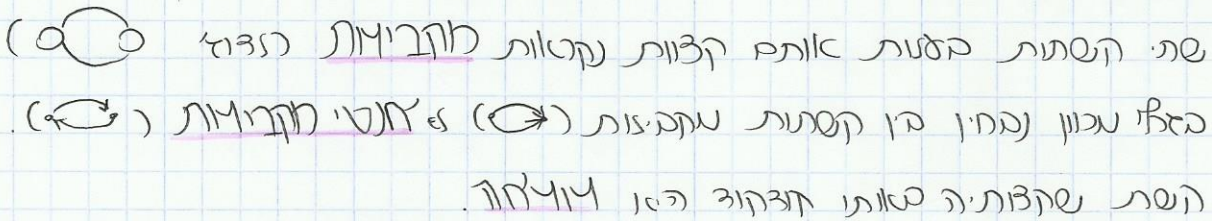 שתי קשתות בעלות אותם קצוות נקראות מקבילות (לדוג'
בגרף מכוון נבחין בין קשתות מקבילות ( ) ל אנטי מקבילות ( ).
קשת שקצותיה באותו קודקוד היא לולאה.